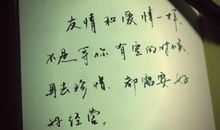 友情和爱情一样
不是等你有空的时候
再去珍惜 都需要好
好经营。